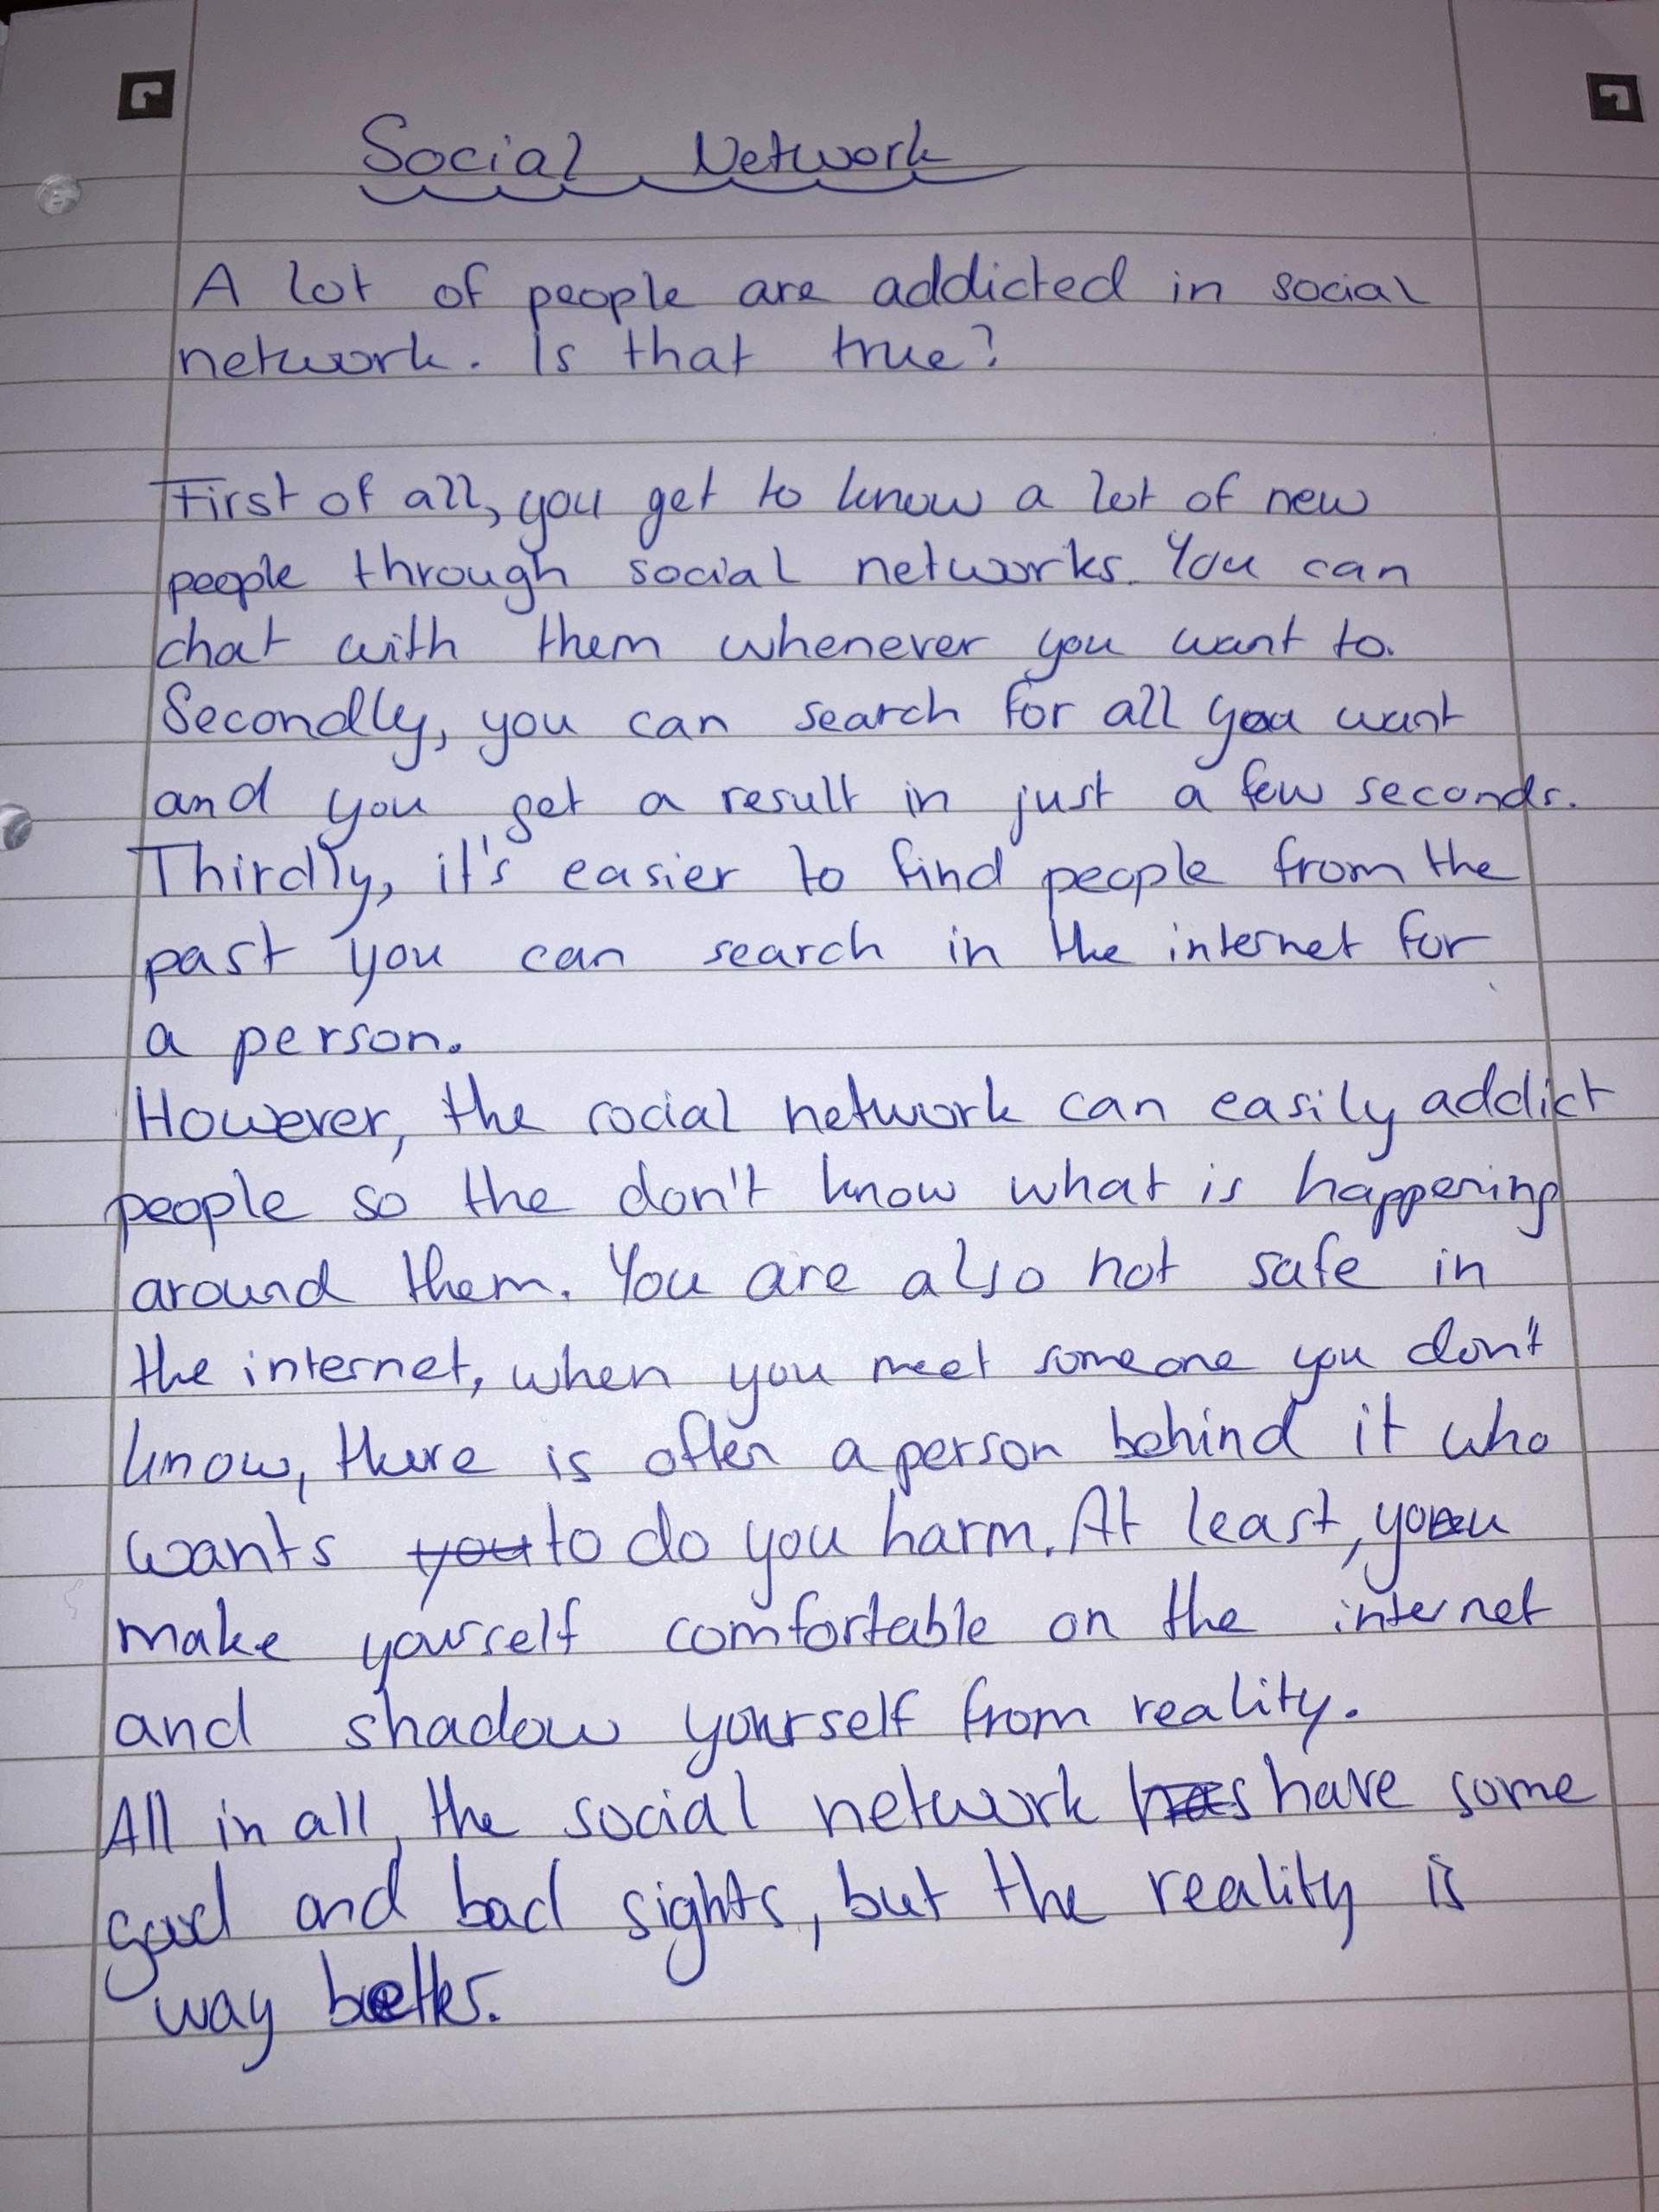 Social Network
A lot of people are addicted in social
network. Is that true?
First of all, you get to know a lot of new
people through social networks. You can
chat with them whenever you want to.
Secondly, you can search for all you want
and you get a result in just a few seconds.
Thirdly, it's easier to find people from the
past you can search in the internet for
a person.
However, the social network can easily addict
people so the don't know what is happening
around them. You are also not safe in
the internet, when you meet someone you don't
know, there is often a person behind it who
wants you to do you harm. At least, you
make yourself comfortable on the internet
and shadow yourself from reality.
All in all, the social network has have some
good and bad sights, but the reality is
way better.